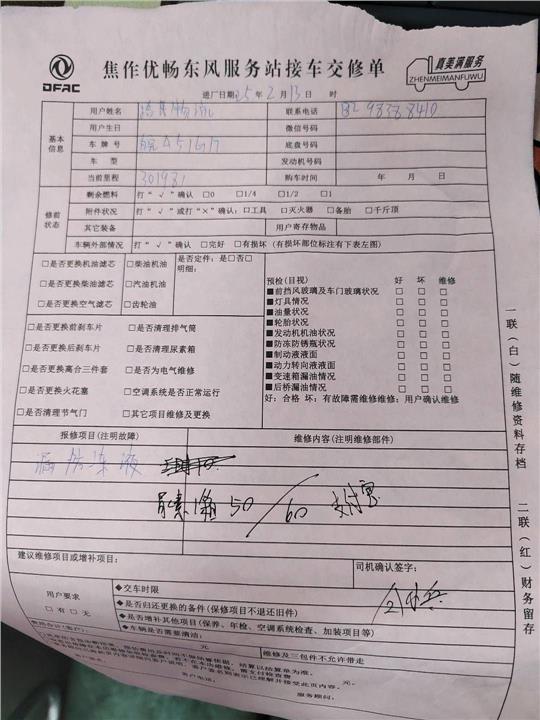 DFAC
焦作优畅东风服务站接车交修单
真美满服务
ZHENMEIMANFUWU
进厂日期:25年2月13日 时
基本信息
用户姓名
联系电话
用户生日
微信号码
车牌号
底盘号码
车型
发动机号码
当前里程 301981
购车时间 年 月 日
修前状态
剩余燃料 打“√”确认 □0 □1/4 □1/2 □1
附件状况 打“√”或打“×”确认:□工具 □灭火器 □备胎 □千斤顶
其它装备 用户寄存物品
车辆外部情况 打“√”确认 □完好 □有损坏(有损坏部位标注有下表左图)
□是否更换机油滤芯 □柴油机油 是否定件:是□否□
□是否更换柴油滤芯 □汽油机油 明细:
□是否更换空气滤芯 □齿轮油
预检(目视) 好 坏 维修
■前挡风玻璃及车门玻璃状况 □ □ □
■灯具情况 □ □ □
■油量状况 □ □ □
■轮胎状况 □ □ □
■发动机机油状况 □ □ □
■防冻防锈瓶状况 □ □ □
■制动液液面 □ □ □
■动力转向液液面 □ □ □
■变速箱漏油情况 □ □ □
■后桥漏油情况 □ □ □
好:合格 坏:有故障需维修维修:用户确认维修
□是否更换前刹车片 □是否清理排气筒
□是否更换后刹车片 □是否清理尿素箱
□是否更换离合三件套 □是否为电气维修
□是否更换火花塞 □空调系统是否正常运行
□是否清理节气门 □其它项目维修及更换
报修项目(注明故障) 维修内容(注明维修部件)
漏防冻液
尿素箱 50/60 支付宝
建议维修项目或增补项目:
司机确认签字:
用户要求
□有 □无
◆交车时限
◆是否归还更换的备件(保修项目不退还旧件)
◆是否增补其他项目(保养、年检、空调系统检查、加装项目等)
◆车辆是否需要清洁:
维修及三包件不允许带走
元。
客户电话:
服务顾问:
一联(白)随维修资料存档
二联(红)财务留存